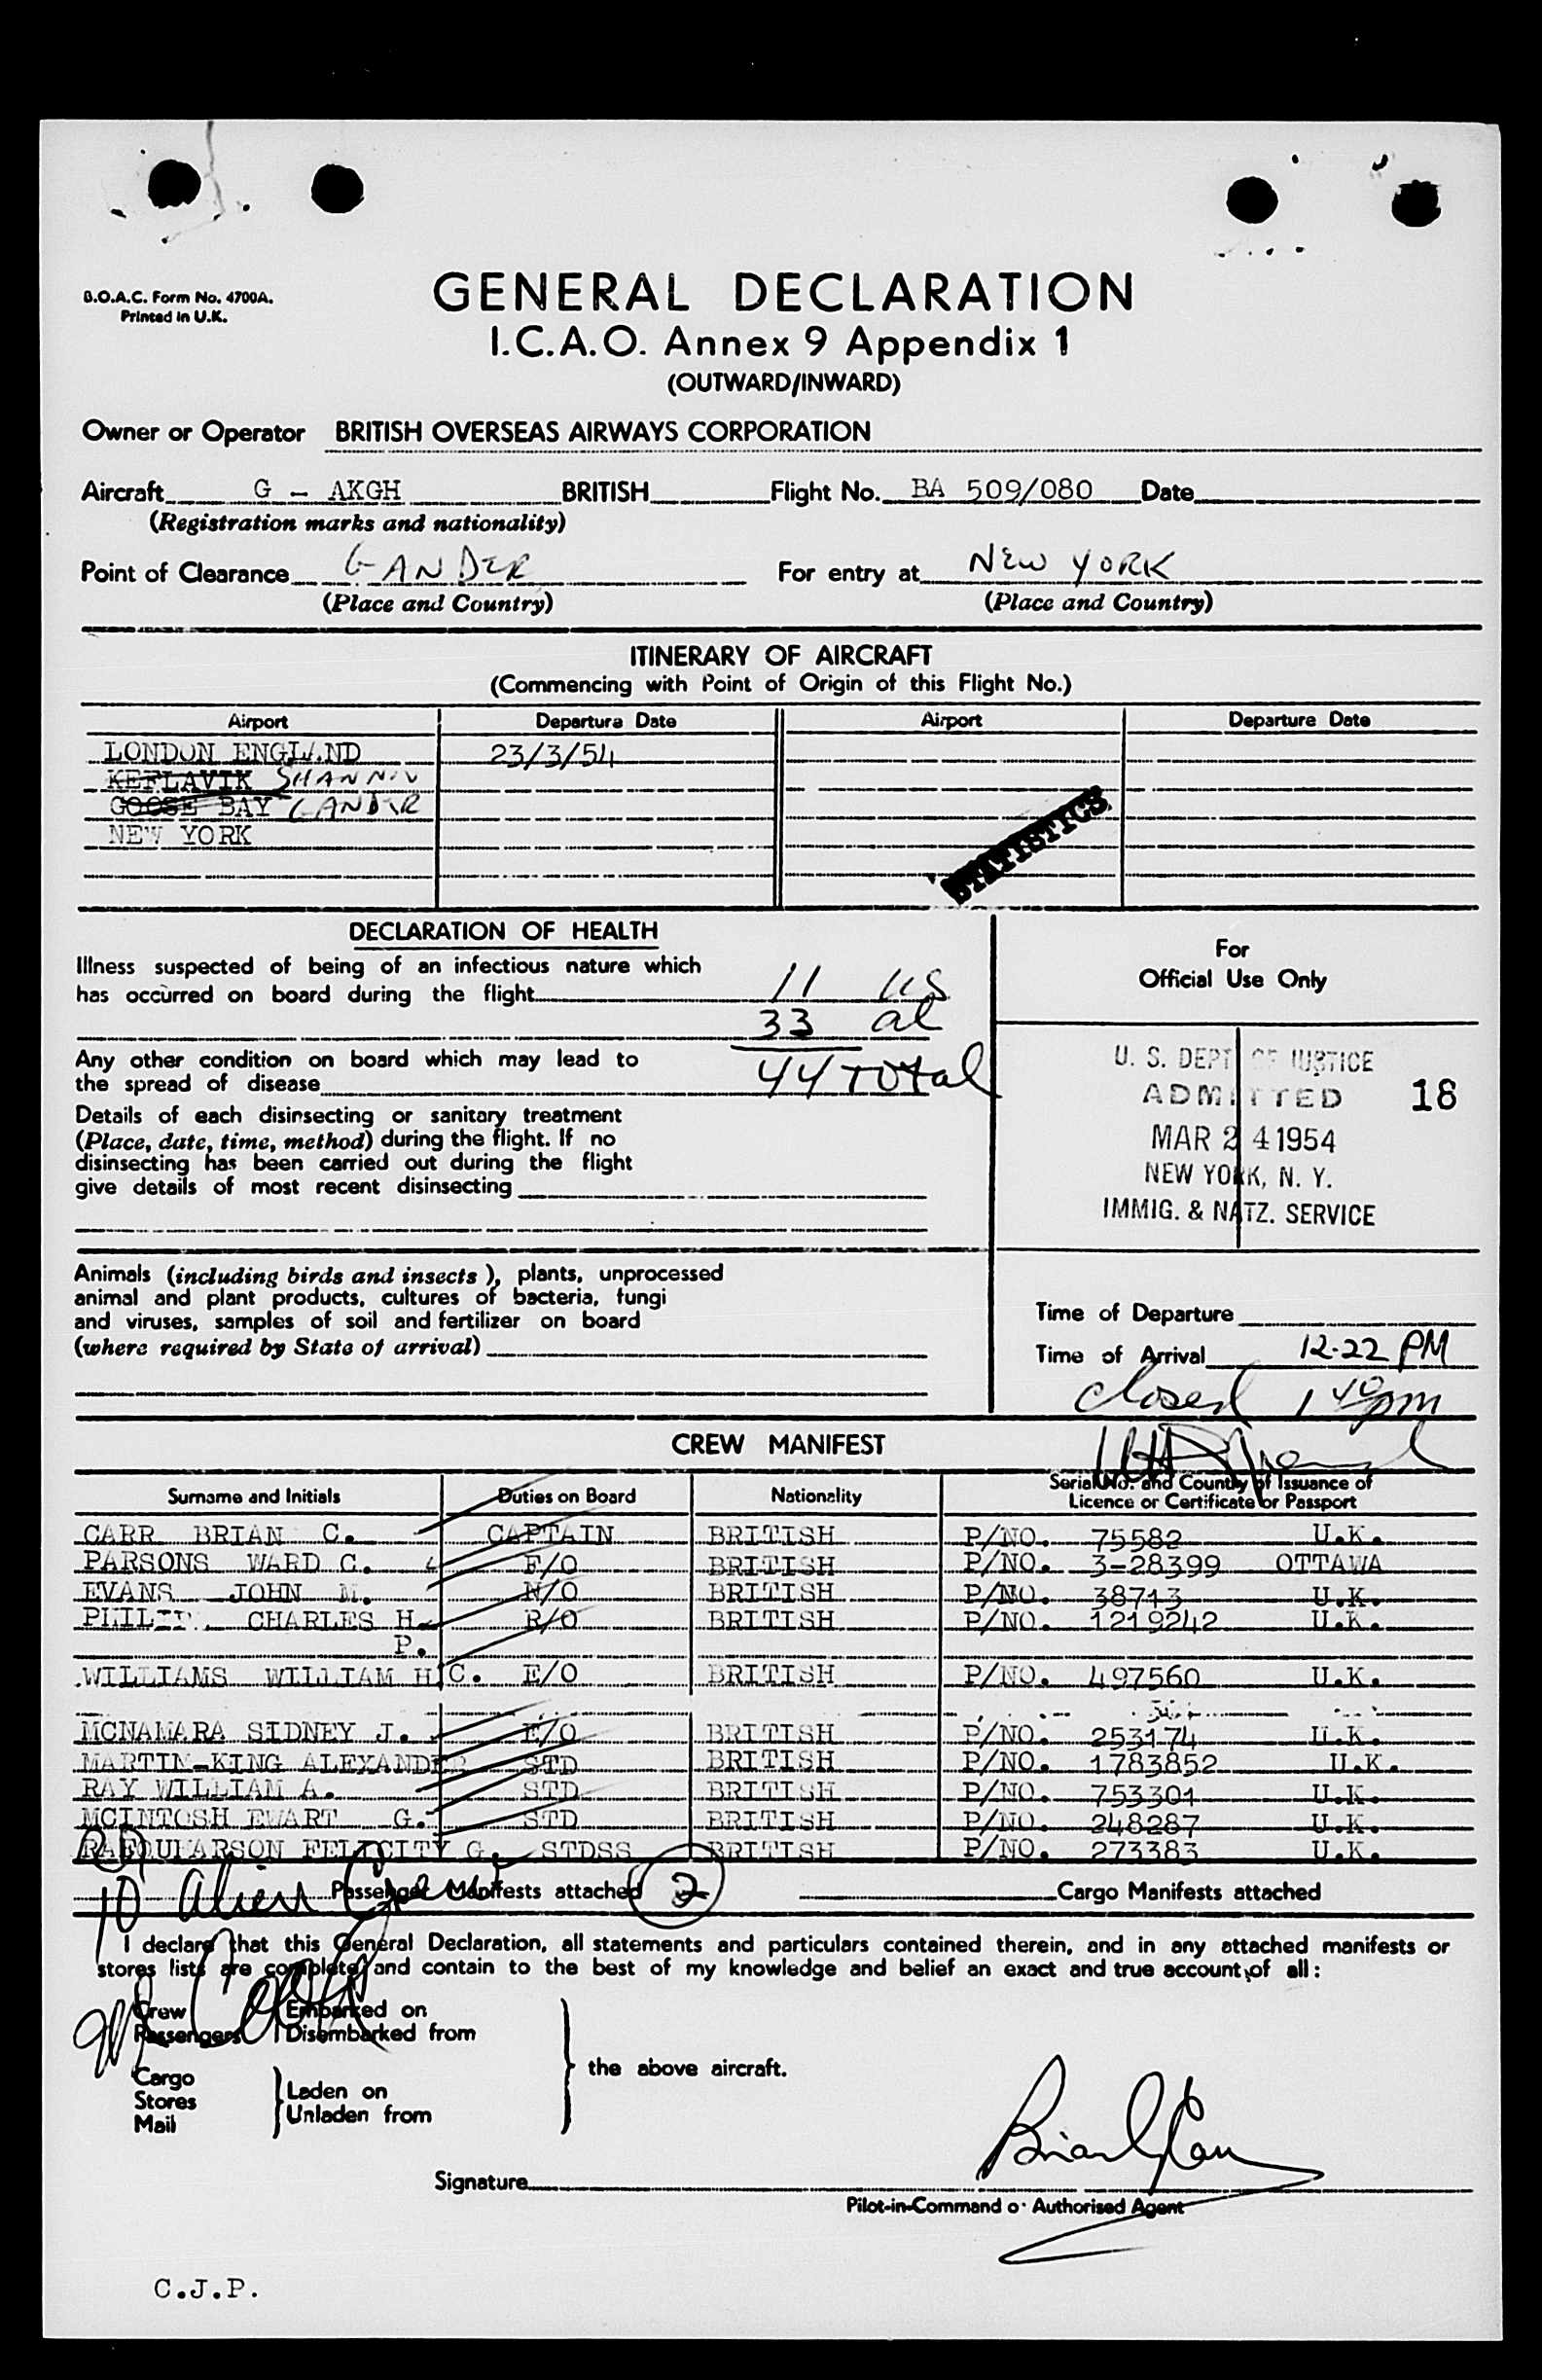 B.O.A.C. Form No. 4700A.
Printed in U.K.
GENERAL DECLARATION
I.C.A.O. Annex 9 Appendix 1
(OUTWARD/INWARD)
Owner or Operator BRITISH OVERSEAS AIRWAYS CORPORATION
Aircraft G - AKGH BRITISH Flight No. BA 509/080 Date
(Registration marks and nationality)
Point of Clearance GANDER For entry at NEW YORK
(Place and Country) (Place and Country)
ITINERARY OF AIRCRAFT
(Commencing with Point of Origin of this Flight No.)
Airport Departure Date Airport Departure Date
LONDON ENGLAND 23/3/54
KEFLAVIK SHANNON
GOOSE BAY GANDER
NEW YORK
STATISTICS
DECLARATION OF HEALTH
Illness suspected of being of an infectious nature which
has occurred on board during the flight 11 US
33 al
Any other condition on board which may lead to
the spread of disease 44 Total
Details of each disinsecting or sanitary treatment
(Place, date, time, method) during the flight. If no
disinsecting has been carried out during the flight
give details of most recent disinsecting
For
Official Use Only
U. S. DEPT OF JUSTICE
ADMITTED 18
MAR 24 1954
NEW YORK, N. Y.
IMMIG. & NATZ. SERVICE
Animals (including birds and insects), plants, unprocessed
animal and plant products, cultures of bacteria, fungi
and viruses, samples of soil and fertilizer on board
(where required by State of arrival)
Time of Departure
Time of Arrival 12-22 PM
Closed 1 40 pm
CREW MANIFEST
Surname and Initials Duties on Board Nationality Serial No. and Country of Issuance of
Licence or Certificate or Passport
CARR BRIAN C. CAPTAIN BRITISH P/NO. 75582 U.K.
PARSONS WARD C. F/O BRITISH P/NO. 3-28399 OTTAWA
EVANS JOHN M. N/O BRITISH P/NO. 38713 U.K.
CHARLES H. R/O BRITISH P/NO. 1219242 U.K.
P.
WILLIAMS WILLIAM H C. E/O BRITISH P/NO. 497560 U.K.
MCNAMARA SIDNEY J. E/O BRITISH P/NO. 253174 U.K.
MARTIN-KING ALEXANDER STD BRITISH P/NO. 1783852 U.K.
RAY WILLIAM A. STD BRITISH P/NO. 753301 U.K.
MCINTOSH EWART G. STD BRITISH P/NO. 248287 U.K.
FELICITY G. STDSS BRITISH P/NO. 273383 U.K.
10 alien Crew Passenger Manifests attached 2 Cargo Manifests attached
I declare that this General Declaration, all statements and particulars contained therein, and in any attached manifests or
stores lists are complete and contain to the best of my knowledge and belief an exact and true account of all:
Crew Embarked on
Passengers Disembarked from
the above aircraft.
Cargo
Stores Laden on
Mail Unladen from
Signature Brian C Carr
Pilot-in-Command or Authorised Agent
C.J.P.